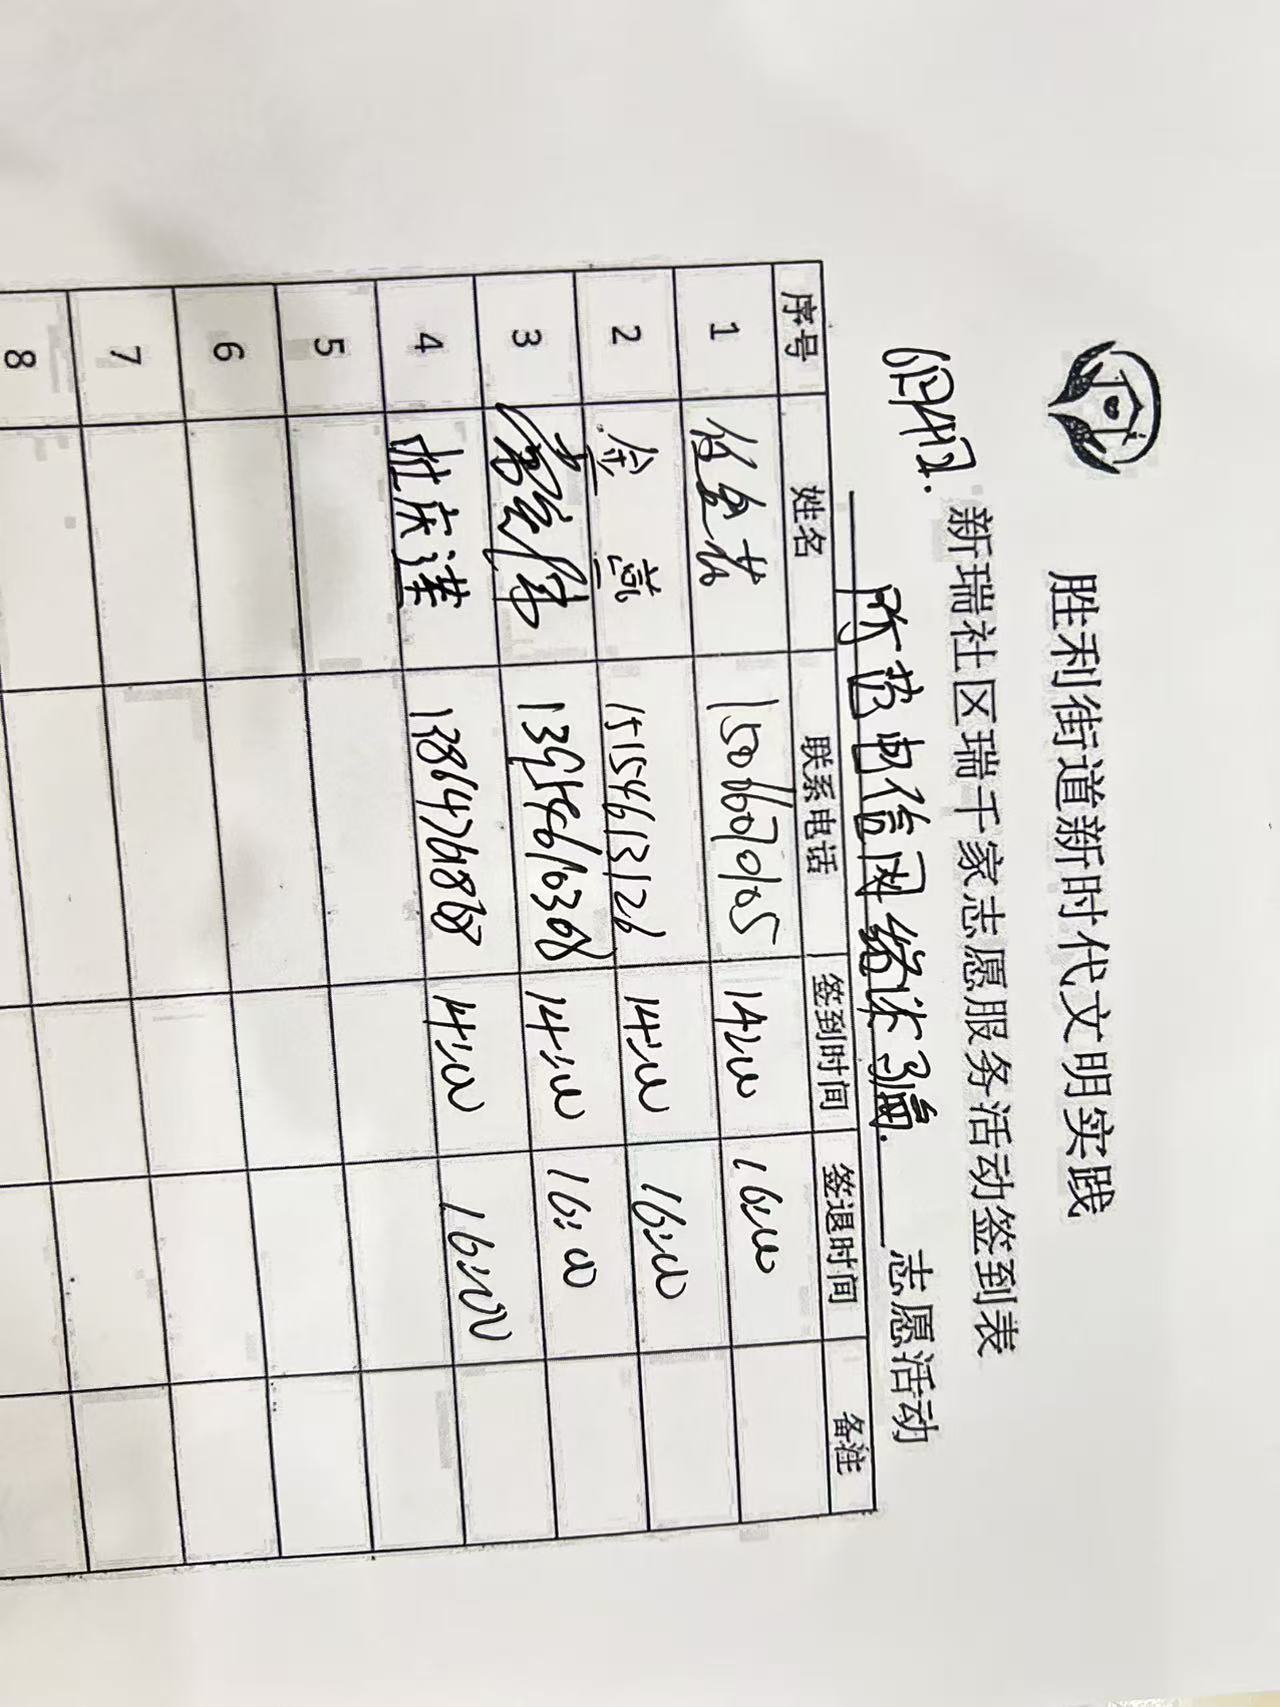 胜利街道新时代文明实践
新瑞社区瑞千家志愿服务活动签到表
防范电信网络诈骗. 志愿活动
序号 姓名 联系电话 签到时间 签退时间 备注
1 14:00 16:00
2 15154613126 14:00 16:00
3 14:00 16:00
4 杜庆洪 13864761868 14:00 16:00
5
6
7
8